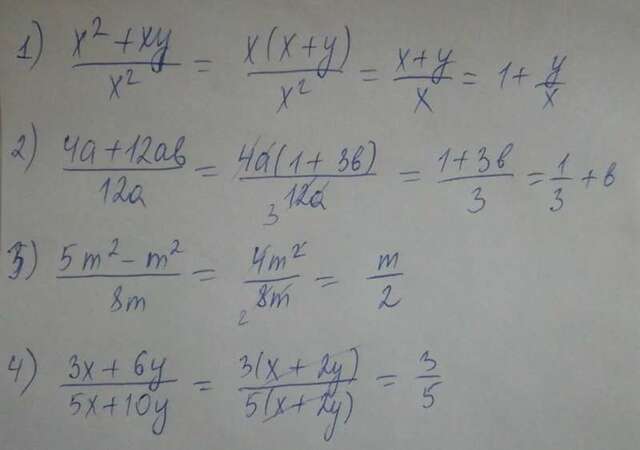 1) (x² + xy)/x² = x(x+y)/x² = (x+y)/x = 1 + y/x
2) (4a + 12ab)/12a = 4a(1 + 3b)/12a 3 = (1+3b)/3 = 1/3 + b
3) (5m² - m²)/8m = 4m²/8m 2 = m/2
4) (3x + 6y)/(5x+10y) = 3(x + 2y)/5(x+2y) = 3/5